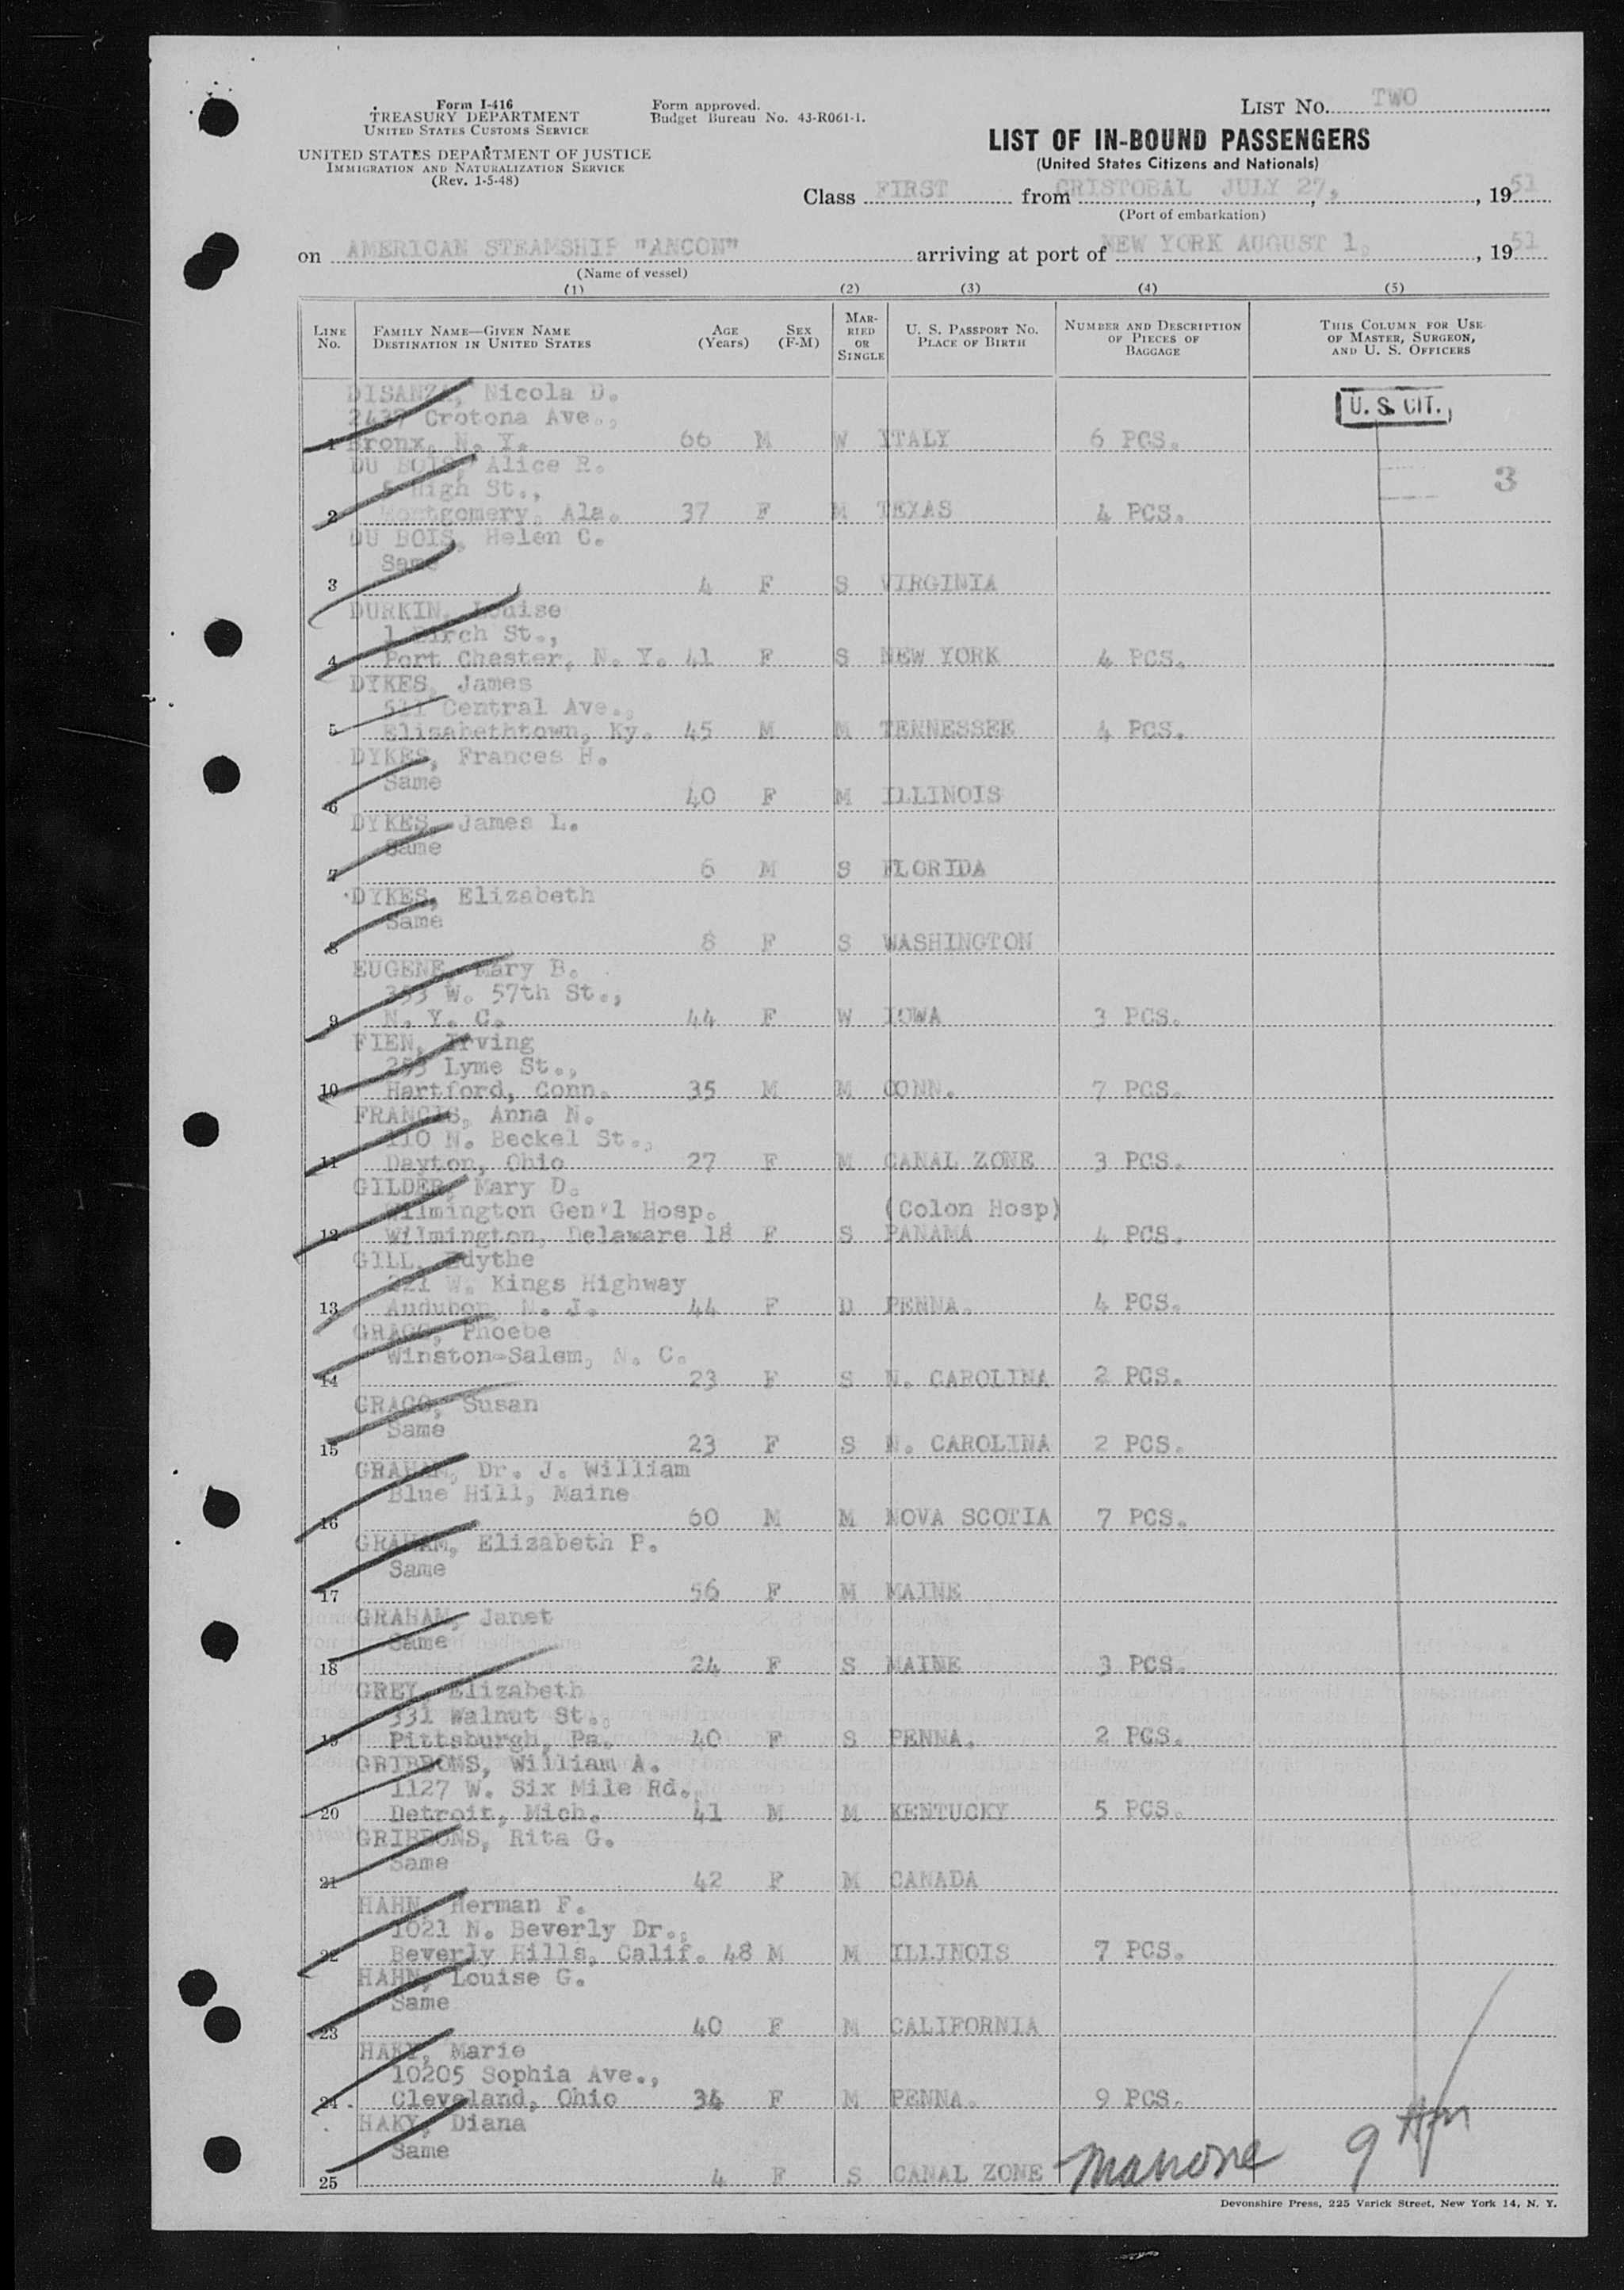 Form I-416
TREASURY DEPARTMENT
UNITED STATES CUSTOMS SERVICE
UNITED STATES DEPARTMENT OF JUSTICE
IMMIGRATION AND NATURALIZATION SERVICE
(Rev. 1-5-48)
Form approved.
Budget Bureau No. 43-R061-1.
LIST NO. TWO
LIST OF IN-BOUND PASSENGERS
(United States Citizens and Nationals)
Class FIRST from CRISTOBAL JULY 27, , 1951
(Port of embarkation)
on AMERICAN STEAMSHIP "ANCON" arriving at port of NEW YORK AUGUST 1, , 1951
(Name of vessel)
(1) (2) (3) (4) (5)
LINE NO.
FAMILY NAME—GIVEN NAME
DESTINATION IN UNITED STATES
AGE (Years)
SEX (F-M)
MARRIED OR SINGLE
U. S. PASSPORT NO.
PLACE OF BIRTH
NUMBER AND DESCRIPTION OF PIECES OF BAGGAGE
THIS COLUMN FOR USE OF MASTER, SURGEON, AND U. S. OFFICERS
DISANZA, Nicola D.
U. S. CIT.
2437 Crotona Ave.,
1 Bronx, N. Y. 66 M W ITALY 6 PCS.
DU BOIS, Alice R.
3
High St.,
2 Montgomery, Ala. 37 F M TEXAS 4 PCS.
DU BOIS, Helen C.
Same
3 4 F S VIRGINIA
DURKIN, Louise
1 Birch St.,
4 Port Chester, N. Y. 41 F S NEW YORK 4 PCS.
DYKES, James
511 Central Ave.,
5 Elisabethtown, Ky. 45 M M TENNESSEE 4 PCS.
DYKES, Frances H.
Same
6 40 F M ILLINOIS
DYKES, James L.
Same
7 6 M S FLORIDA
DYKES, Elizabeth
Same
8 8 F S WASHINGTON
EUGENE, Mary B.
353 W. 57th St.,
9 N. Y. C. 44 F W IOWA 3 PCS.
FIEN, Irving
Lyme St.,
10 Hartford, Conn. 35 M M CONN. 7 PCS.
FRANCIS, Anna N.
110 N. Beckel St.,
11 Dayton, Ohio 27 F M CANAL ZONE 3 PCS.
GILDER, Mary D.
Wilmington Gen'l Hosp. (Colon Hosp)
12 Wilmington, Delaware 18 F S PANAMA 4 PCS.
GILL, Edythe
221 W. Kings Highway
13 Audubon, N. J. 44 F D PENNA. 4 PCS.
GRAGG, Phoebe
Winston-Salem, N. C.
14 23 F S N. CAROLINA 2 PCS.
GRAGG, Susan
Same
15 23 F S N. CAROLINA 2 PCS.
GRAHAM, Dr. J. William
Blue Hill, Maine
16 60 M M NOVA SCOTIA 7 PCS.
GRAHAM, Elizabeth P.
Same
17 56 F M MAINE
GRAHAM, Janet
Same
18 24 F S MAINE 3 PCS.
GREY, Elizabeth
331 Walnut St.,
19 Pittsburgh, Pa. 40 F S PENNA. 2 PCS.
GRIBBONS, William A.
1127 W. Six Mile Rd.,
20 Detroit, Mich. 41 M M KENTUCKY 5 PCS.
GRIBBONS, Rita G.
Same
21 42 F M CANADA
HAHN, Herman F.
1021 N. Beverly Dr.,
22 Beverly Hills, Calif. 48 M M ILLINOIS 7 PCS.
HAHN, Louise G.
Same
23 40 F M CALIFORNIA
HAKY, Marie
10205 Sophia Ave.,
24 Cleveland, Ohio 34 F M PENNA. 9 PCS.
HAKY, Diana
Same
25 4 F S CANAL ZONE
Manone 9
Devonshire Press, 225 Varick Street, New York 14, N. Y.